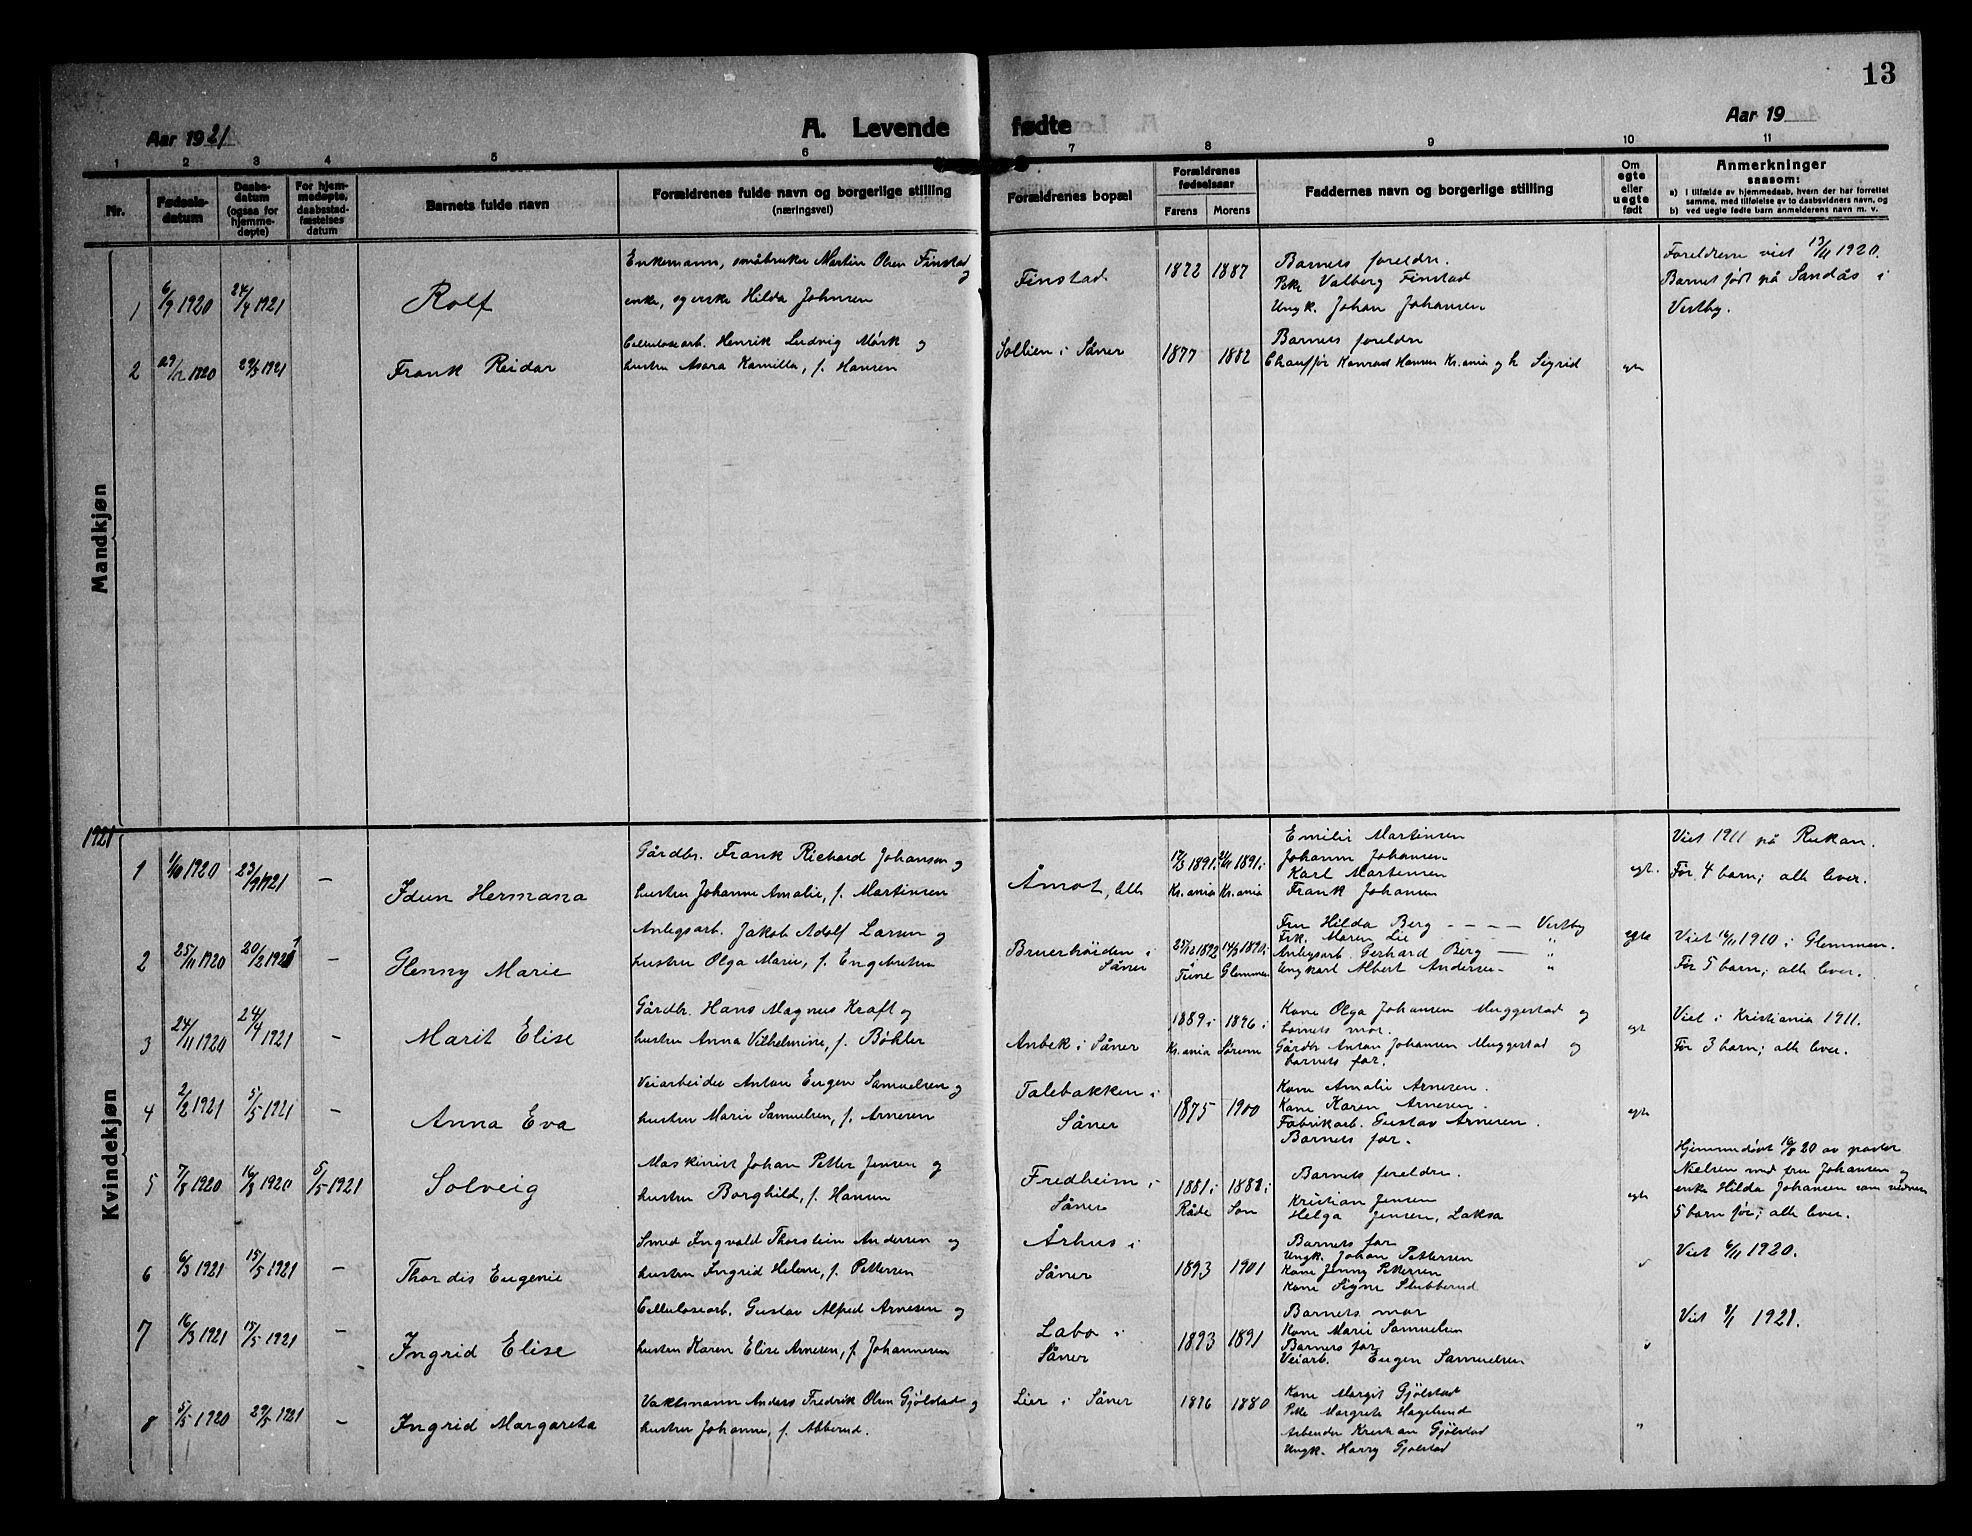 13
Aar 1921
A. Levende fødte
Aar 19
1 2 3 4 5 6 7 8 9 10 11
Nr.
Fødsels-
datum
Daabs-
datum
(ogsaa for
hjemme-
døpte)
For hjem-
medøpte,
daabsstad-
fæstelses
datum
Barnets fulde navn
Forældrenes fulde navn og borgerlige stilling
(næringsvei)
Forældrenes bopæl
Forældrenes
fødselsaar
Farens Morens
Faddernes navn og borgerlige stilling
Om
egte
eller
uegte
født
Anmerkninger
saasom:
a) i tilfælde av hjemmedaab, hvem der har forrettet
samme, med tilføielse av to daabsvidners navn, og
b) ved uegte fødte barn anmelderens navn m. v.
Mandkjøn
1 6/9 1920 24/4 1921 Rolf
Enkemann, småbruker Martin Olsen Finstad og
enke, Hilda Johnsen
Finstad
1872 1887
Barnets foreldre.
Pike Valborg Finstad
Ungk. Johan Johansen
Foreldrene viet 13/11 1920.
Barnet født på Sandås i
Vestby.
2 29/12 1920 29/5 1921 Frank Reidar
Cellulosearb. Henrik Ludvig Mørk og
hustru Asora Kamilla, f. Hansen
Sollien i Såner
1877 1882
Barnets foreldre
Chauffør Konrad Hansen Kr.ania og h. Sigrid
egte
Kvindekjøn
1921
1 1/10 1920 23/1 1921 – Idun Hermana
Gårdbr. Frank Richard Johansen og
hustru Johanne Amalie, f. Martinsen
Åmot,
17/3 1891 i 1891 i
Kr.ania Kr.ania
Emilie Martinsen
Johanne Johansen
Karl Martinsen
Frank Johansen
egt.
Viet 1911 på Rukan.
Før 4 barn; alle lever.
2 25/11 1920 20/2 1921 – Glenny Marie
Anlegsarb. Jakob Adolf Larsen og
hustru Olga Marie, f. Engebretsen
Bruerhöiden i
Såner
1892 1890 i
Tune Glemmen
Fru Hilda Berg – – – – Vestby
Frk. Maren Lie "
Anlegsarb. Gerhard Berg — "
Ungkarl Albert Andersen – "
egte
Viet 1910 i Glemmen.
Før 5 barn; alle lever.
3 24/11 1920 24/4 1921 – Marit Elise
Gårdbr. Hans Magnus Kraft og
hustru Anna Vilhelmine, f. Bøhler
Anbek i Såner
1889 i 1896 i
Kr.ania Sørum
Kone Olga Johansen Muggestad og
barnets mor.
Gårdbr Anton Johansen Muggestad og
barnets far.
egt
Viet i Kristiania 1911.
Før 3 barn; alle lever.
4 2/2 1921 5/5 1921 – Anna Eva
Veiarbeider Anton Eugen Samuelsen og
hustru Marie Samuelsen, f. Arnesen
Talebakken i
Såner
1875 1900
Kone Amalie Arnesen.
Kone Karen Arnesen.
Fabrikarb. Gustav Arnesen.
Barnets far.
egte
5 7/8 1920 16/8 1920 5/5 1921 Solveig
Maskinist Johan Petter Jensen og
hustru Borghild, f. Hansen
Fredheim i
Såner
1881 i 1882 i
Råde Son
Barnets foreldre.
Kristian Jensen
Helga Jensen, Laksa
egte
Hjemmedøpt 16/8 20 av pastor
Nielsen med fru Johansen og
enke Hilda Johansen som vidner
5 barn før; alle lever.
6 6/3 1921 15/5 1921 – Thordis Eugenie
Smed Ingvald Thorstein Andersen og
hustru Ingrid Helene, f. Pettersen
Århus i
Såner
1893 1901
Barnets far
Ungk. Johan Pettersen
Kone Jenny Pettersen
Kone Signe Stubberud
Viet 6/11 1920.
7 16/3 1921 15/5 1921 – Ingrid Elise
Cellulosearb. Gustav Alfred Arnesen og
hustru Karen Elise Arnesen, f. Johannesen
Labo i
Såner
1893 1891
Barnets mor
Kone Marie Samuelsen
Barnets far
Veiarb. Eugen Samuelsen
Viet 1921.
8 5/5 1920 29/5 1921 – Ingrid Margareta
Vaktmann Anders Fredrik Olsen Gjølstad og
hustru Johanne, f. Abberud.
Lier i Såner
1876 1880
Kone Margit Gjølstad
Pike Margrete Hagelund
Arbeider Kristian Gjølstad
Ungk. Harry Gjølstad
"